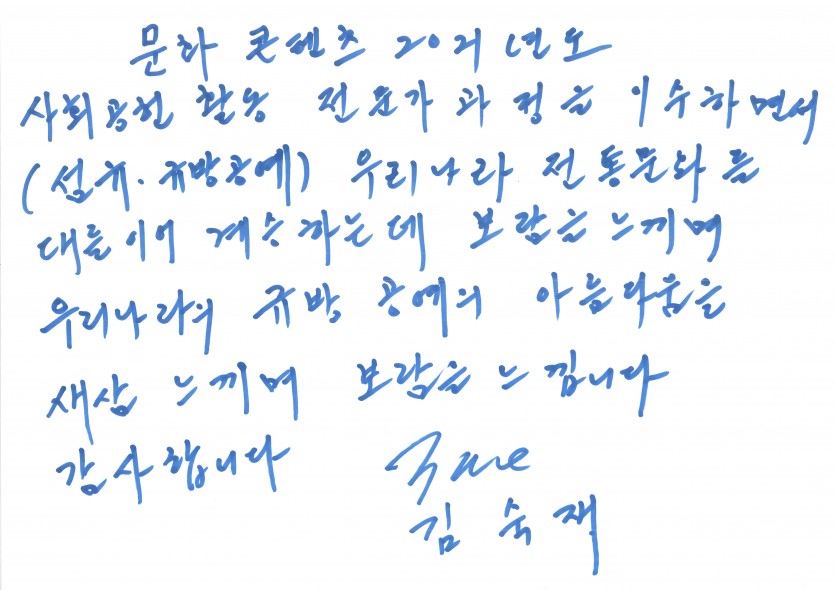 문화 콘텐츠 2021년도
사회공헌 활동 전문가 과정을 이수하면서
(섬유. 규방공예) 우리나라 전통문화를
대를이어 계승하는데 보람을 느끼며
우리나라의 규방 공예의 아름다움을
새삼 느끼며 보람을 느낍니다
감사합니다
김숙재